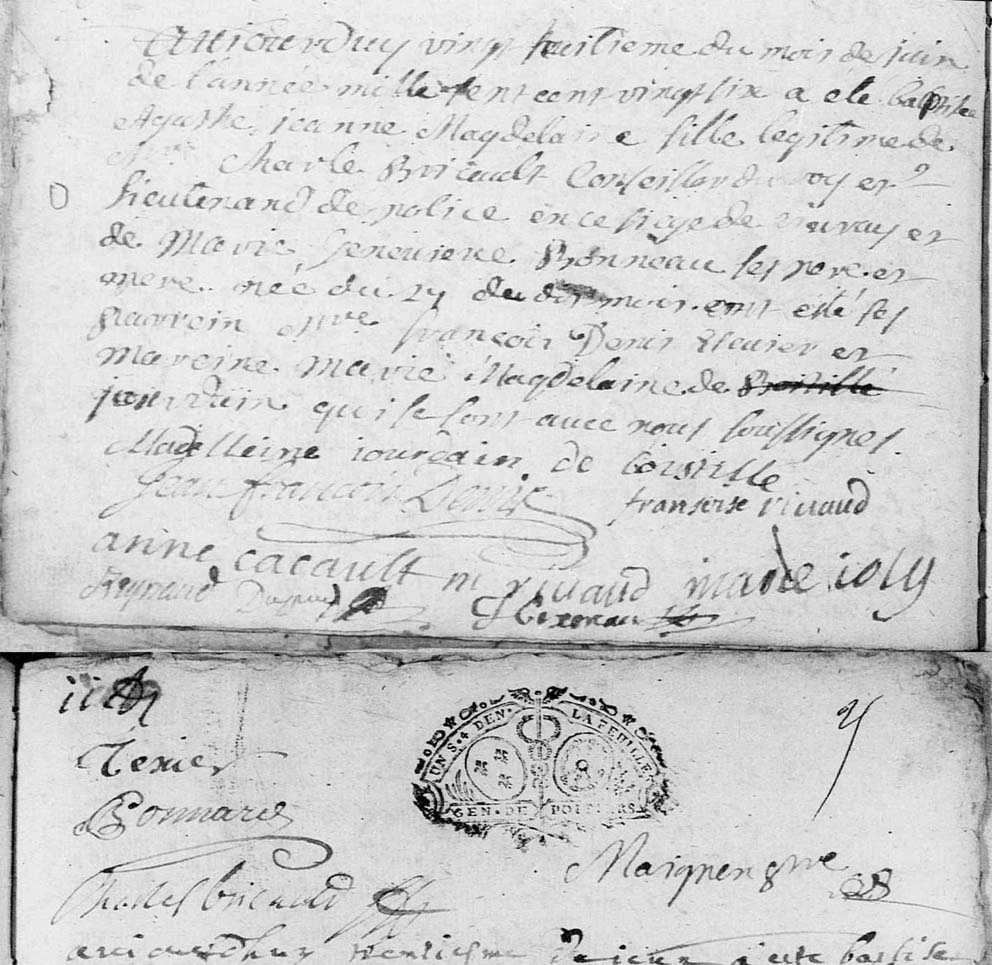 Aujourduy vingt huitieme du mois de juin
de l'annee mille sept cent vingt six a ete baptisee
Agathe jeanne Magdelaine fille legitime de
Mre Charle Bricault Conseiller du roy et
lieutenand de police en ce siege de civray et
de Marie Genevieve Bonneau ses pere et
mere née du 27 du dit mois ont esté ses
parrein Mre françois Denis Ecuier et
mareine Marie Magdelaine de
jourdain qui se sont avec nous soussignes
Madelleine iourdain de boistille
Jean françois Denis fransoise rivaud
anne cacault m rivaud marie ioly
Reynaud Dupuis
Texier
Bonnard
UN S. 4 DEN. LA FEUILLE
GEN. DE POITIERS
Maignen
Charles bricauld
aujourdhuy de juin a este baptise